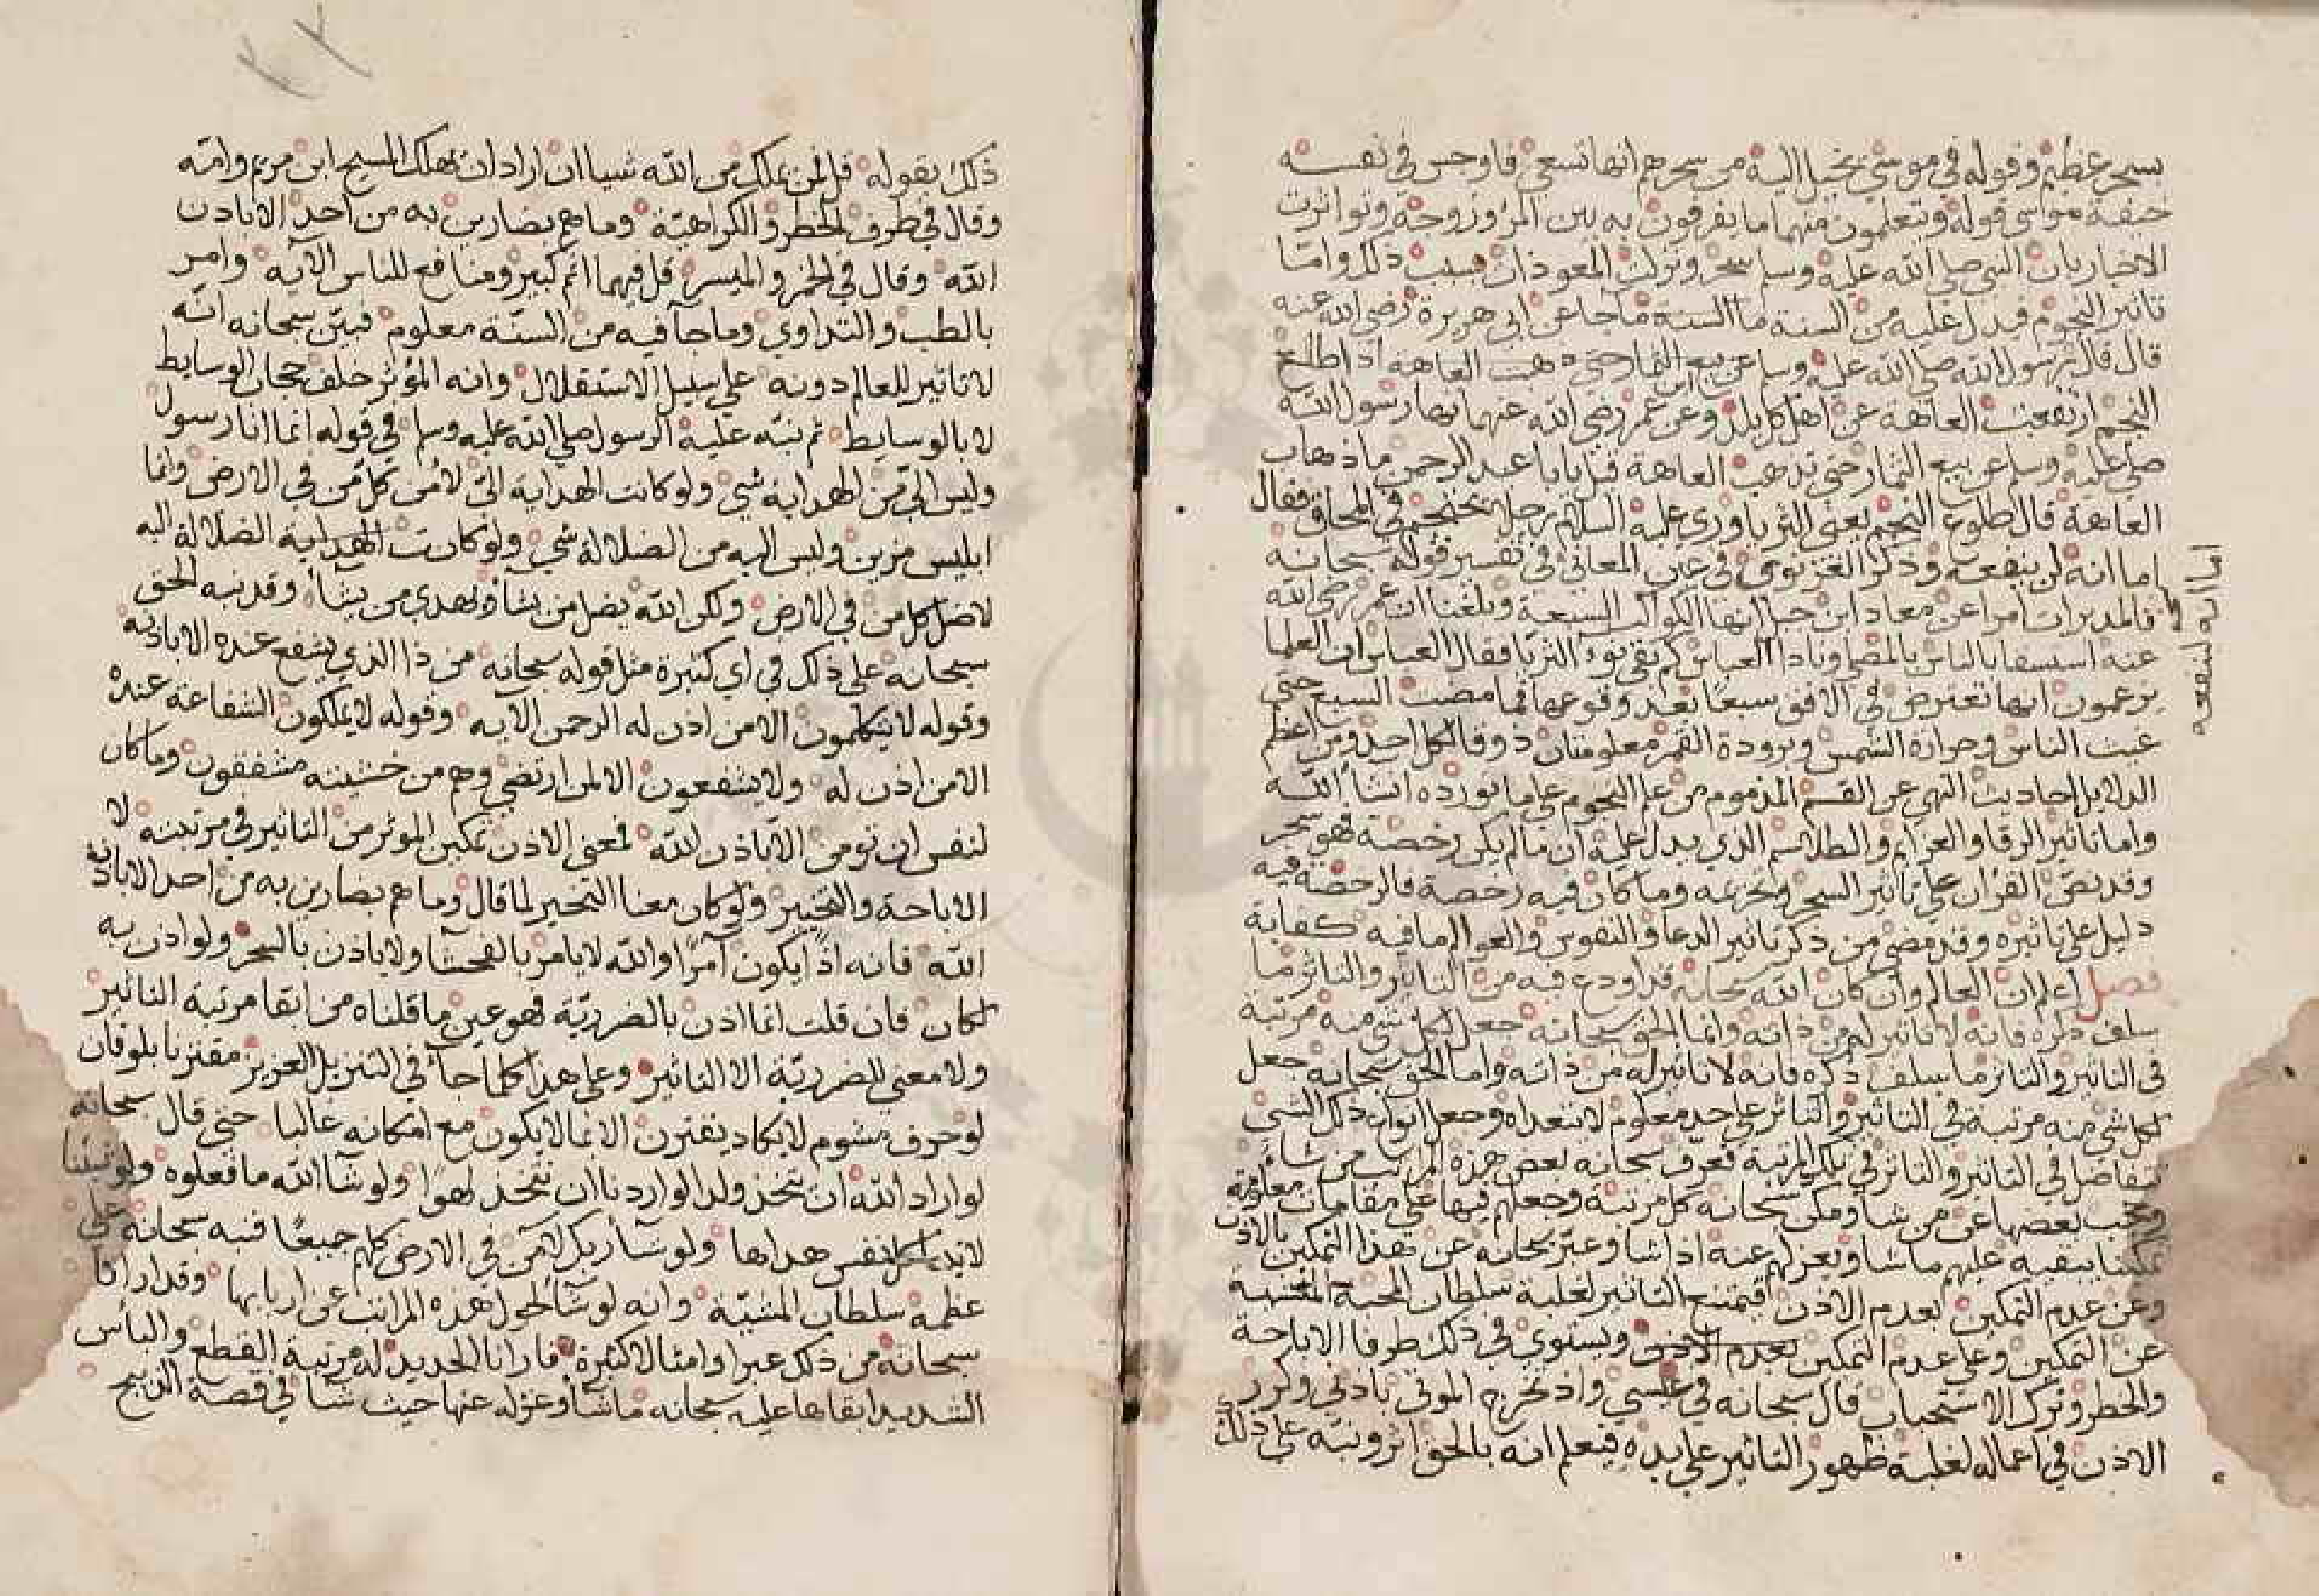 بسحر عظيم وقوله في موسي يخيل اليه من سحرهم انها تسعي فاوجس في نفسه
خيفة موسى قوله ويتعلمون منهما ما يفرقون به بين المرء وزوجه وتواترت
الاخبار بان النبي صلي الله عليه وسلم سحر ونزلت المعوذتان بسبب ذلك واما
تاثير النجوم فيدل عليه من السنة ما السنة ما جا عن ابي هريرة رضي الله عنه
قال قال رسول الله صلي الله عليه وسلم عن بيع الثمار حتي تذهب العاهة اذا طلع
النجم ارتفعت العاهة عن اهل كل بلد وعن ابن عمر رضي الله عنهما نها رسول الله
صلي عليه وسلم عن بيع الثمار حتي تذهب العاهة قيل يابا عبد الرحمن ما ذهاب
العاهة قال طلوع النجم يعني الثريا وري عليه السلام رجل في المحاق فقال
اما انه لن ينفعه وذكر الغزنوي في عين المعاني في تفسير قوله سبحانه
فالمدبرات امرا عن معاد ابن جبل انها الكواكب السبعة وبلغنا ان عمر رضي الله
عنه استسقا بالناس بالمصلي ونادا العباس كم بقي نوء الثريا فقال العباس ان العلما
يزعمون انها تعترض في الافق سبعا بعد وقوعها فما مضت السبع حتى
غيث الناس وحرارة الشمس وبرودة القمر معلومتان ذوقا لكل احد ومن اعظم
الدلايل احاديث النهي عن القسم المذموم من علم النجوم علي ما نورده ان شا الله
واما تاثير الرقا والعزايم والطلاسم الذي يدل عليه ان ما لم يكن رخصة فهو سحر
وقد نص القران علي تاثير السحر وتحريمه وما كان فيه رخصة فالرخصة فيه
دليل علي تاثيره وقد مضي من ذكر تاثير الدعا والنفوس والعوالم ما فيه كفاية
فصل اعلم ان العالم وان كان الله سبحانه قد اودع فيه من التاثير والتاثر ما
سلف ذكره فانه لا تاثير لهم من ذاته وانما الحق سبحانه جعل لكل شي منه مرتبة
في التاثير والتاثر ما سلف ذكره فانه لا تاثير له من ذاته واما الحق سبحانه جعل
لكل شي منه مرتبة في التاثير والتاثر علي حد معلوم لا يتعداه وجعل ابواب ذلك الشي
تتفاضل في التاثير والتاثر في تلك المرتبة فعرف سبحانه بعض هذه المراتب من شاء
وحجب بعضها عن من شا ومكن سبحانه كل مرتبة وجعلهم فيها علي مقامات معلومة
تمكينا يبقيه عليهم ما شا ويعزلهم عنه اذا شا وعبر سبحانه عن هذا التمكين بالاذن
وعن عدم التمكين بعدم الاذن فيمتنع التاثير لغلبة سلطان المحبة
عن التمكين وعلي عدم التمكين بعدم الاذن ويستوي في ذلك طرفا الاباحة
والحظر وترك الاستحباب قال سبحانه في عيسي واذ تخرج الموتي باذني وكرر
الاذن في اعماله لغلبة ظهور التاثير علي يده فيعلم انه بالحق اثر ونبه علي ذلك
اما انه لن ينفعه
ذلك بقوله قل فمن يملك من الله شيا ان اراد ان يهلك المسيح ابن مريم وامه
وقال في طرف الحظر والكراهية وما هم بضارين به من احد الا باذن
الله وقال في الخمر والميسر قل فيهما اثم كبير ومنافع للناس الآية وامر
بالطب والتداوي وما جا فيه من السنة معلوم فبين سبحانه انه
لا تاثير للعالم دونه علي سبيل الاستقلال وانه المؤثر خلف حجاب الوسايط
لا بالوسايط ثم نبه عليه الرسول صلي الله عليه وسلم في قوله انما انا رسول
وليس الي من الهداية شي ولو كانت الهداية الي لأمن كل من في الارض وانما
ابليس مزين وليس اليه من الضلالة شي ولو كانت الهداية الضلالة اليه
لاضل كل من في الارض ولكن الله يضل من يشا ويهدي من يشا وقد نبه الحق
سبحانه علي ذلك في اي كثيرة مثل قوله سبحانه من ذا الذي يشفع عنده الا باذنه
وقوله لا يتكلمون الا من اذن له الرحمن الآيه وقوله لا يملكون الشفاعة عنده
الا من اذن له ولا يشفعون الا لمن ارتضي وهم من خشيته مشفقون وما كان
لنفس ان تومن الا باذن الله فمعني الاذن تمكين الموثر من التاثير في مرتبته لا
الاباحة والتخيير ولو كان معنا التخيير لما قال وما هم بضارين به من احد الا باذن
الله فانه اذا يكون آمرا والله لا يامر بالفحشا ولا ياذن بالسحر ولو اذن به
لكان فان قلت انما اذن بالضررية فهو عين ما قلناه من ابقا مرتبة التاثير
ولا معني للضررية الا التاثير وعلي هذا كلما جا في التنزيل العزيز مقترنا بلو فان
لو حرف مشوم لا يكاد يقترن الا بما لا يكون مع امكانه غالبا حتي قال سبحانه
لو اراد الله ان يتخذ ولدا لو اردنا ان نتخذ لهوا ولو شا الله ما فعلوه ولو شينا
لاتينا كل نفس هداها ولو شا ربك لآمن من في الارض كلهم جميعا فنبه سبحانه علي
عظمة سلطان المشية وانه لو شا لحول هذه المراتب عن اربابها وقد ارانا
سبحانه من ذلك عبرا وامثالا كثيرة فارانا الحديد له مرتبة القطع والباس
الشديد ابقاها عليه سبحانه ما شا وعزله عنها حيث شا في قصة الذبيح